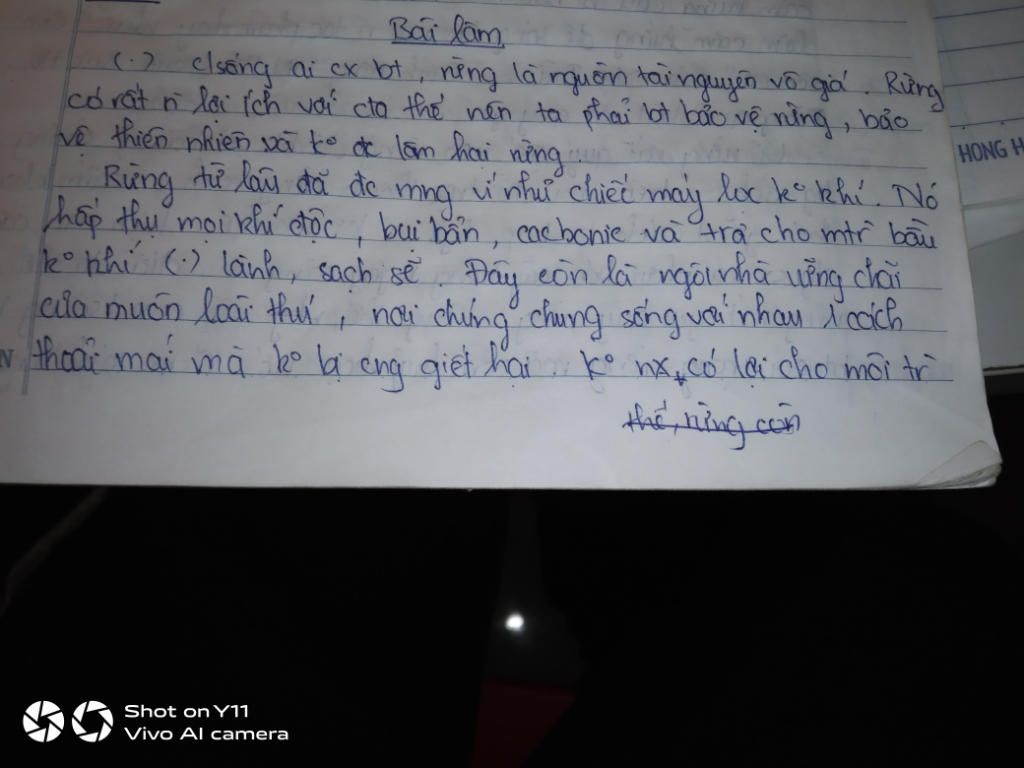 Bài làm
(.) c/sống ai cx bt, rừng là nguồn tài nguyên vô giá. Rừng
có rất n lợi ích với cta thế nên ta phải bt bảo vệ rừng, bảo
vệ thiên nhiên và k° đc làm hại rừng
Rừng từ lâu đã đc mng ví như chiếc máy lọc k° khí. Nó
hấp thụ mọi khí độc, bụi bẩn, cacbonic và trả cho mtr bầu
k° khí (.) lành, sạch sẽ. Đây còn là ngôi nhà vững chãi
của muôn loài thú, nơi chúng chung sống với nhau 1 cách
thoải mái mà k° bị cng giết hại. K° nx, có lợi cho môi tr
thế, rừng còn
HONG H
N
Shot on Y11
Vivo AI camera